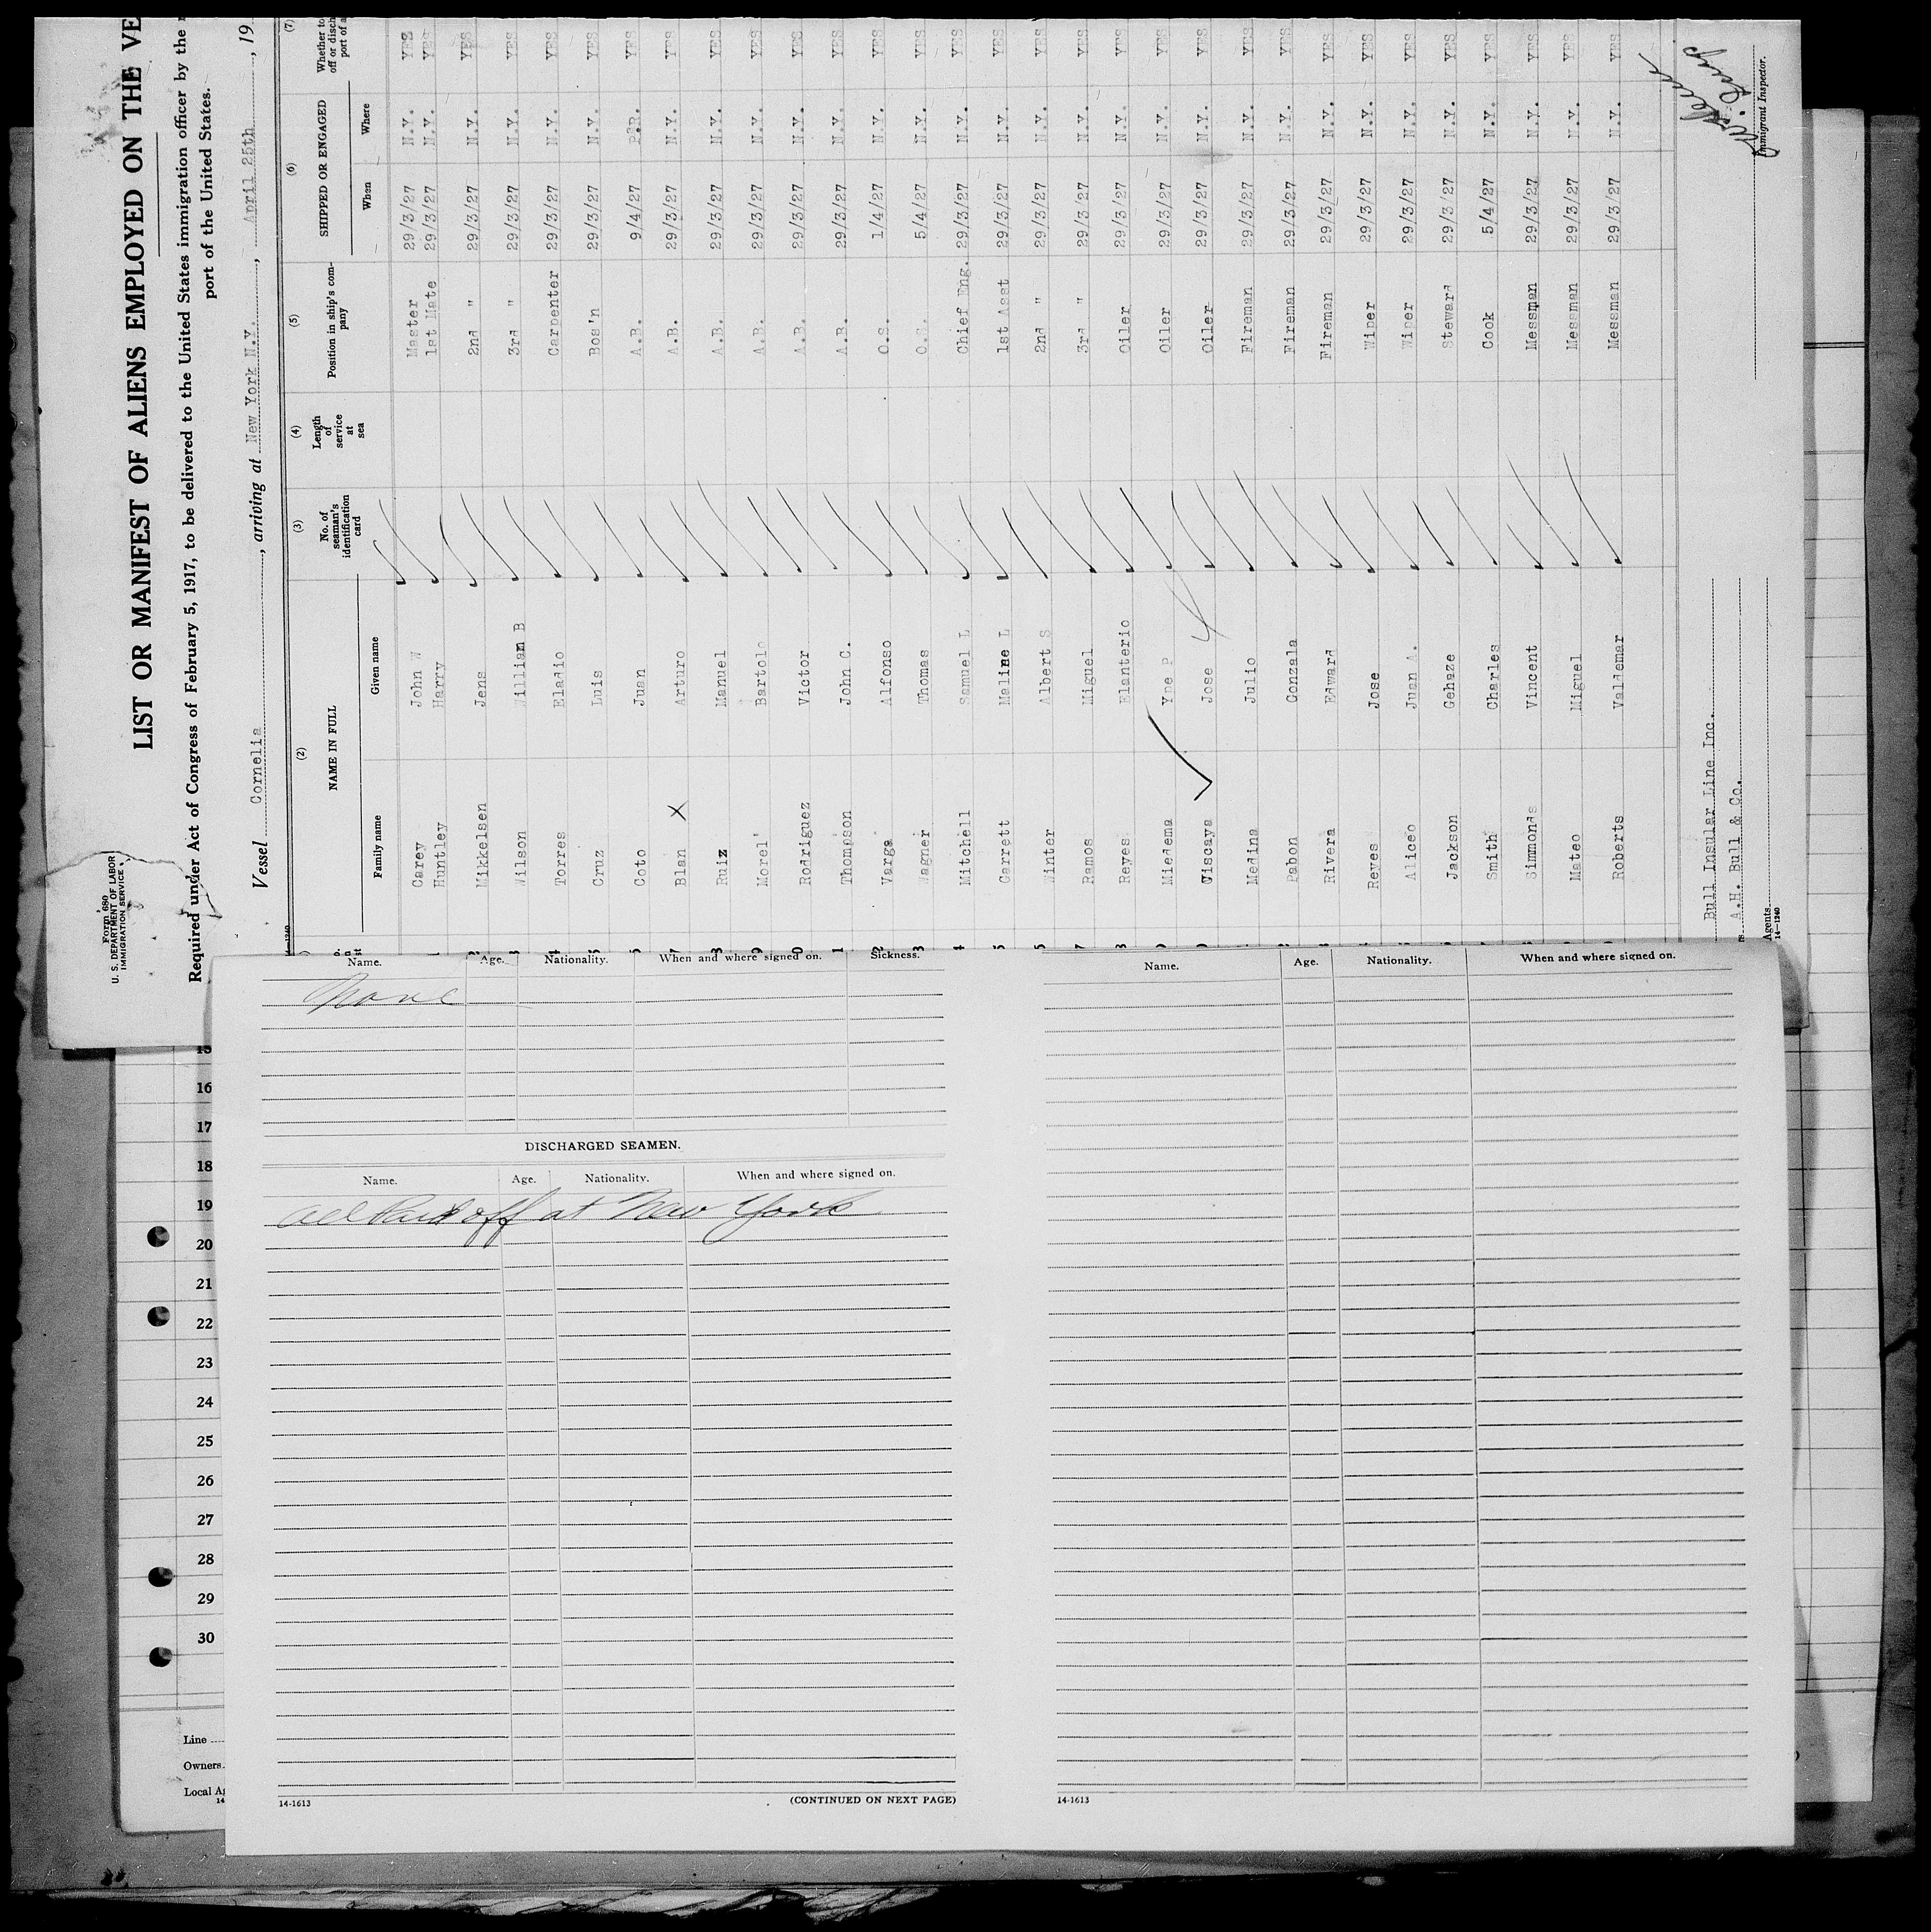 Form 680
U. S. DEPARTMENT OF LABOR
IMMIGRATION SERVICE
LIST OR MANIFEST OF ALIENS EMPLOYED ON THE VE
Required under Act of Congress of February 5, 1917, to be delivered to the United States immigration officer by the
port of the United States.
Vessel Cornelia, arriving at New York N.Y., April 25th, 19
(2) (3) (4) (5) (6) (7)
NAME IN FULL
Family name Given name
No. of seaman's identification card
Length of service at sea
Position in ship's company
SHIPPED OR ENGAGED
When Where
Whether to
off or disch
port of a
Carey John W Master 29/3/27 N.Y. YES
Huntley Harry 1st Mate 29/3/27 N.Y. YES
Mikkelsen Jens 2nd " 29/3/27 N.Y. YES
Wilson William B 3rd " 29/3/27 N.Y. YES
Torres Eladio Carpenter 29/3/27 N.Y. YES
Cruz Luis Bos'n 29/3/27 N.Y. YES
Coto Juan A.B. 9/4/27 P.R. YES
Blan X Arturo A.B. 29/3/27 N.Y. YES
Ruiz Manuel A.B. 29/3/27 N.Y. YES
Morel' Bartolo A.B. 29/3/27 N.Y. YES
Rodriguez Victor A.B. 29/3/27 N.Y. YES
Thompson John C. A.B. 29/3/27 N.Y. YES
Varga Alfonso O.S. 1/4/27 N.Y. YES
Wagner Thomas O.S. 5/4/27 N.Y. YES
Mitchell Samuel L Chief Eng. 29/3/27 N.Y. YES
Garrett Maline L 1st Asst 29/3/27 N.Y. YES
Winter Albert S 2nd " 29/3/27 N.Y. YES
Ramos Miguel 3rd " 29/3/27 N.Y. YES
Reyes Elanterio Oiler 29/3/27 N.Y. YES
Miedema Ype P Oiler 29/3/27 N.Y. YES
Viscaya Jose Oiler 29/3/27 N.Y. YES
Medina Julio Fireman 29/3/27 N.Y. YES
Pabon Gonzala Fireman 29/3/27 N.Y. YES
Rivera Edward Fireman 29/3/27 N.Y. YES
Reyes Jose Wiper 29/3/27 N.Y. YES
Aliceo Juan A. Wiper 29/3/27 N.Y. YES
Jackson Gehaze Steward 29/3/27 N.Y. YES
Smith Charles Cook 5/4/27 N.Y. YES
Simmonds Vincent Messman 29/3/27 N.Y. YES
Mateo Miguel Messman 29/3/27 N.Y. YES
Roberts Valdemar Messman 29/3/27 N.Y. YES
Bull Insular Line Inc.
A.H. Bull & Co.
Agents
14-1240
Immigrant Inspector.
Name. Age. Nationality. When and where signed on. Sickness.
None
DISCHARGED SEAMEN.
Name. Age. Nationality. When and where signed on.
All Paid off at New York
14-1613
(CONTINUED ON NEXT PAGE)
Name. Age. Nationality. When and where signed on.
14-1613
15
16
17
18
19
20
21
22
23
24
25
26
27
28
29
30
Line
Owners
Local Ag
14